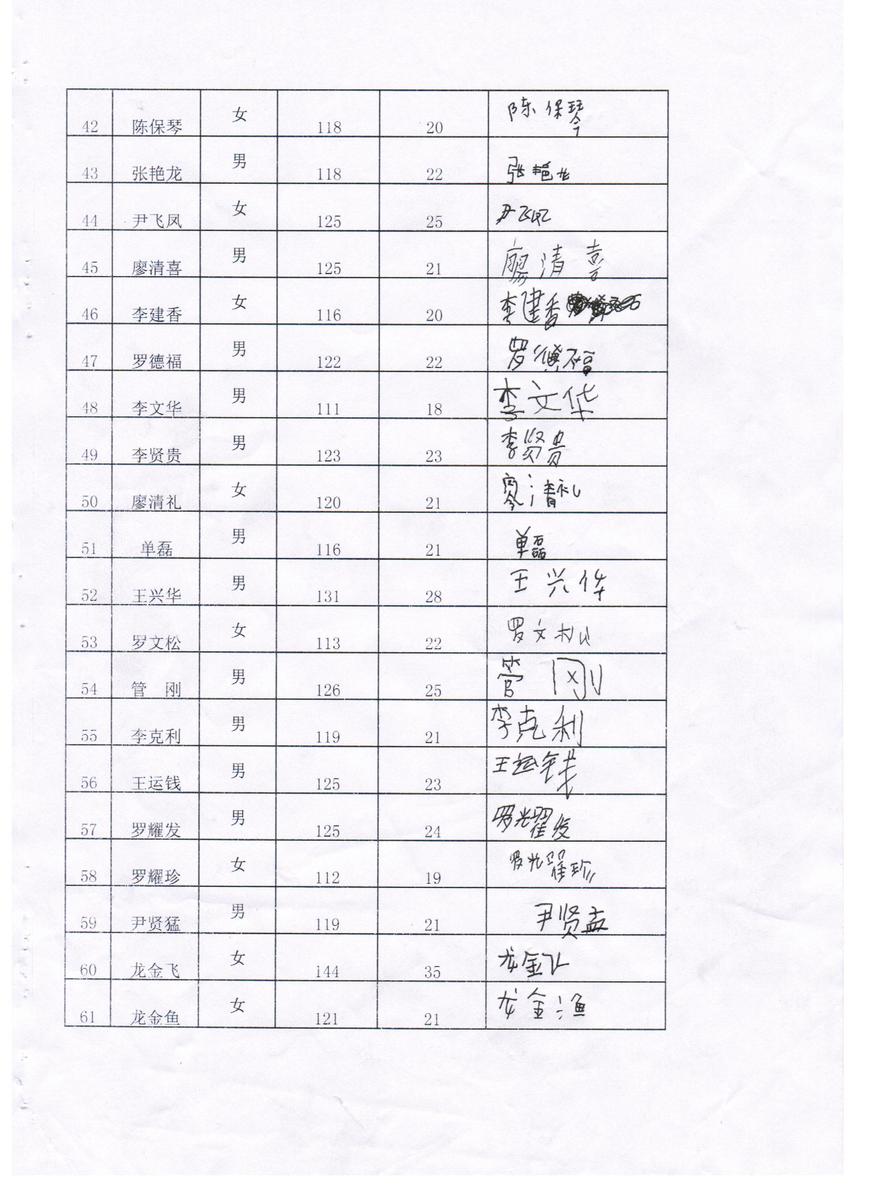 42 陈保琴 女 118 20 陈保琴
43 张艳龙 男 118 22 张艳龙
44 尹飞凤 女 125 25 尹飞凤
45 廖清喜 男 125 21 廖清喜
46 李建香 女 116 20 李建香
47 罗德福 男 122 22 罗德福
48 李文华 男 111 18 李文华
49 李贤贵 男 123 23 李贤贵
50 廖清礼 女 120 21 廖清礼
51 单磊 男 116 21 单磊
52 王兴华 男 131 28 王兴华
53 罗文松 女 113 22 罗文松
54 管 刚 男 126 25 管刚
55 李克利 男 119 21 李克利
56 王运钱 男 125 23 王运钱
57 罗耀发 男 125 24 罗耀发
58 罗耀珍 女 112 19 罗耀珍
59 尹贤猛 男 119 21 尹贤孟
60 龙金飞 女 144 35 龙金飞
61 龙金鱼 女 121 21 龙金渔